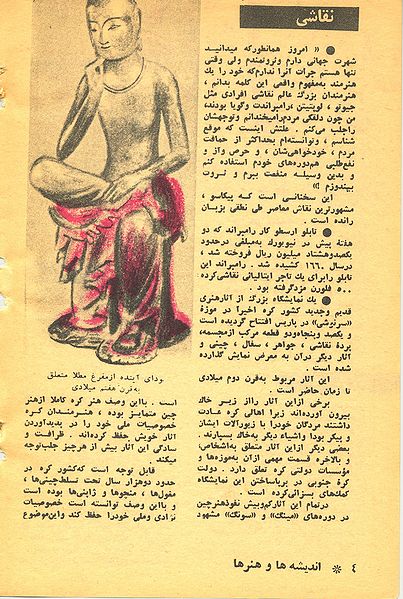 نقاشی
● « امروز همانطورکه میدانید
شهرت جهانی دارم وثروتمندم ولی وقتی
تنها هستم جرات آنرا ندارم‌که خود را یک
هنرمند به‌مفهوم واقعی این کلمه بدانم ،
هنرمندان بزرگ عالم نقاشی افرادی مثل
جیوتو ، لوتیتین ،رامبراندت وگویا بودند؛
من چون دلقکی مردم‌رامیخندانم وتوجهشان
راجلب می‌کنم . علتش اینست که موقع
شناسم ، وتوانسته‌ام بحداکثر از حماقت
مردم ، خودخواهی‌شان ، و حرص وآز و
نفع‌طلبی هم‌دوره‌های خودم استفاده کنم
و بدین وسیله منفعت ببرم و ثروت
بیندوزم !»
این سخنانی است که پیکاسو ،
مشهورترین نقاش معاصر طی نطقی بزبان
رانده است .
● تابلو ارسطو کار رامبراند که دو
هفته پیش در نیویورك به‌مبلغی درحدود
یکصدوهشتاد میلیون ریال فروخته شد ،
درسال ۱۶۶۰ کشیده شد . رامبراند این
تابلو رابرای یك تاجر ایتالیائی نقاشی‌کرده
۵۰۰ فلورن مزدگرفته بود .
● یك نمایشگاه بزرگ از آثارهنری
قدیم وجدید کشور کره اخیرا در موزهٔ
«سرنوشی» در پاریس افتتاح گردیده است
و یکصد وپنجاه‌ودو قطعه مرکب ازمجسمه،
پردهٔ نقاشی ، جواهر ، سفال ، چینی و
آثار دیگر درآن به معرض نمایش گذارده
شده است .
این آثار مربوط به‌قرن دوم میلادی
تا زمان حاضر است .
برخی ازاین آثار رااز زیر خاک
بیرون آورده‌اند زیرا اهالی کره عادت
داشتند مردگان خودرا با زیورآلات ایشان
و پیکر بودا واشیاء دیگر به‌خاك بسپارند .
بعضی دیگر ازاین آثار متعلق به‌اشخاص،
و بالاخره قسمت مهمی ازآن به‌موزه‌ها و
مؤسسات دولتی کره تعلق دارد . دولت
کرهٔ جنوبی در برپاساختن این نمایشگاه
کمك‌های بسزائی‌کرده است .
درتمام این آثارکم‌وبیش نفوذهنرچین
در دوره‌های «مینگ» و «سونگ» مشهود
بودای آینده ازمفرغ مطلا متعلق
به‌قرن هفتم میلادی
است . بااین وصف هنر کره کاملا ازهنر
چین متمایز بوده ، هنرمندان کره
خصوصیات ملی خود را در پدیدآوردن
آثار خویش حفظ کرده‌اند . ظرافت و
سادگی این آثار بیش از هرچیز جلب‌توجه
میکند .
قابل توجه است که‌کشور کره در
حدود دوهزار سال تحت تسلط‌چینی‌ها ،
مغول‌ها ، منچوها و ژاپنی‌ها بوده است
و بااین وصف توانسته است خصوصیات
نژادی وملی خودرا حفظ کند واین‌موضوع
۴ * اندیشه ها و هنرها